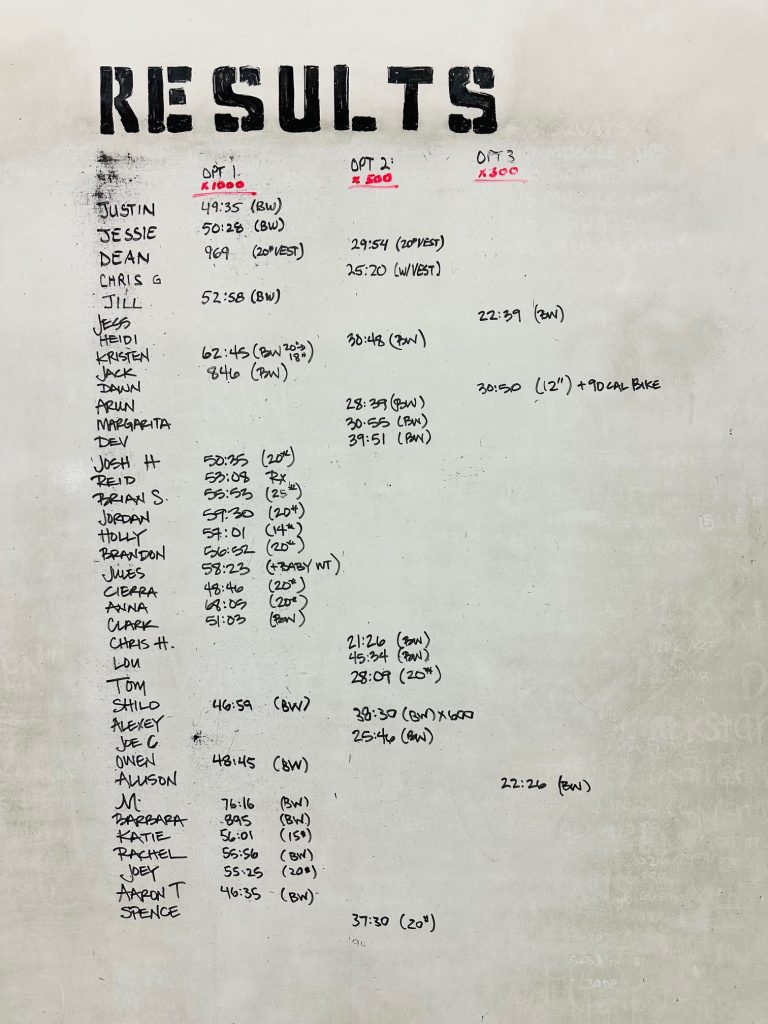 RESULTS
OPT 1: OPT 2: OPT 3
x1000 x 500 x300
JUSTIN 49:35 (BW)
JESSIE 50:28 (BW)
DEAN 969 (20# VEST) 29:54 (20# VEST)
CHRIS G 25:20 (W/VEST)
JILL 52:58 (BW)
JESS 22:39 (BW)
HEIDI 30:48 (BW)
KRISTEN 62:45 (BW 20"→ 18")
JACK 846 (BW)
DAWN 30:50 (12") + 90 CAL BIKE
ARUN 28:39 (BW)
MARGARITA 30:55 (BW)
DEV 39:51 (BW)
JOSH H 50:35 (20#)
REID 53:08 Rx
BRIAN S. 55:53 (25#)
JORDAN 59:30 (20#)
HOLLY 57:01 (14#)
BRANDON 56:52 (20#)
JULES 58:23 (+BABY WT)
CIERRA 48:46 (20#)
ANNA 68:05 (20#)
CLARK 51:03 (BW)
CHRIS H. 21:26 (BW)
LOU 45:34 (BW)
TOM 28:09 (20#)
SHILO 46:59 (BW)
ALEXEY 38:30 (BW) x600
JOE C 25:46 (BW)
OWEN 48:45 (BW)
ALLISON 22:26 (BW)
M. 76:16 (BW)
BARBARA 895 (BW)
KATIE 56:01 (15#)
RACHEL 55:56 (BW)
JOEY 55:25 (20#)
AARON T 46:35 (BW)
SPENCE 37:30 (20#)